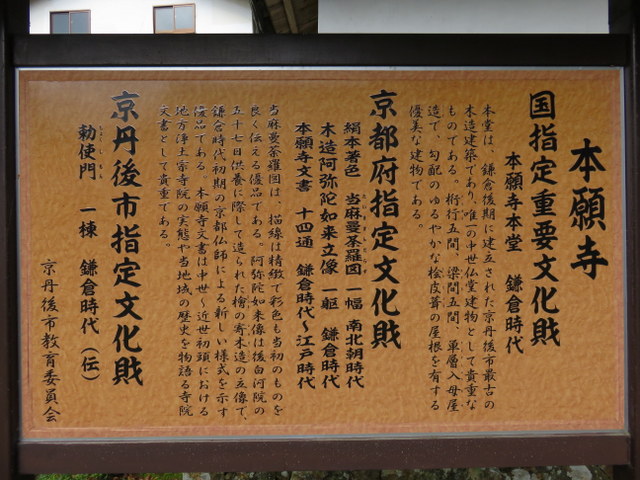 本願寺
国指定重要文化財
本願寺本堂　鎌倉時代
本堂は、鎌倉後期に建立された京丹後市最古の
木造建築であり、唯一の中世仏堂建物として貴重な
ものである。桁行五間、梁間五間、単層入母屋
造で、勾配のゆるやかな桧皮葺の屋根を有する
優美な建物である。
京都府指定文化財
絹本著色　当麻曼荼羅図　一幅　南北朝時代
木造阿弥陀如来立像　一躯　鎌倉時代
本願寺文書　十四通　鎌倉時代～江戸時代
当麻曼荼羅図は、描線は精緻で彩色も当初のものを
良く伝える優品である。阿弥陀如来像は後白河院の
五十七日供養に際して造られた檜の寄木造の立像で、
鎌倉時代初期の京都仏師による新しい様式を示す
優品である。本願寺文書は中世～近世初頭における
地方浄土宗寺院の実態や当地域の歴史を物語る寺院
文書として貴重である。
京丹後市指定文化財
勅使門　一棟　鎌倉時代（伝）
京丹後市教育委員会